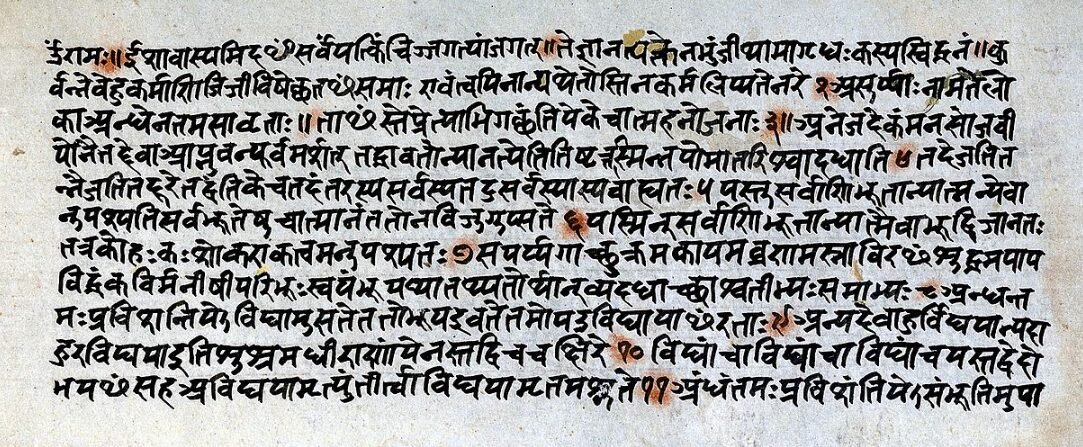 ॐ रामः॥ ईशावास्यमिद ꣳ सर्वं यत्किंचिज्जगत्यां जगत्॥ ते
र्वन्नेवेह कर्माणि जिजीविषेच्छत ꣳ समाः एवं त्वयि नान्यथेतोस्ति न कर्म लिप्यते नरे २ असुर्य्याः नाम ते लो
का अन्धेन तमसावृताः॥ ता ꣳ स्ते प्रेत्याभिगच्छंति ये के चात्महनो जनाः ३॥ अनेजदेकं मनसो जवी
यो नैनद्देवा आप्नुवन्पूर्वमर्शत् तद्धावतोन्यानत्येति तिष्टत्तस्मिन्नपो मातरिश्वा दधाति ४ तदेजति त
न्नैजति तद्दूरे तद्वंतिके च तदंतरस्य सर्वस्य तदु सर्वस्यास्य बाह्यतः ५ यस्तु सर्वाणि भूतान्यात्मन्येवा
नुपश्यति सर्वभूतेषु चात्मानं ततो न विजुगुप्सते ६ यस्मिन् सर्वाणि भूतान्यात्मैवाभूद्विजानतः
तत्र को हः कः शोक एकत्वमनुपश्यतः ७ स पर्य्यगाच्छुक्रमकायमव्रणमस्नाविर ꣳ शुद्धमपाप
विद्धं कविर्मनीषी परिभूः स्वयंभू याथातथ्यतोर्थान् व्यदधाच्छाश्वतीभ्यः समाभ्यः ८ अन्धन्त
मः प्रविशन्ति येऽविद्यामुपासते ततो भूय इव ते तमो य उ विद्याया ꣳ रताः ९ अन्यदेवाहुर्विद्ययान्यदा
हुरविद्यया इति शुश्रुम धीराणां ये नस्तद्विचचक्षिरे १० विद्यां चाविद्यां च यस्तद्वेदो
भय ꣳ सह अविद्यया मृत्युं तीर्त्वा विद्ययामृतमश्नुते ११ अंधंतमः प्रविशंति येऽसंभूतिमुपा